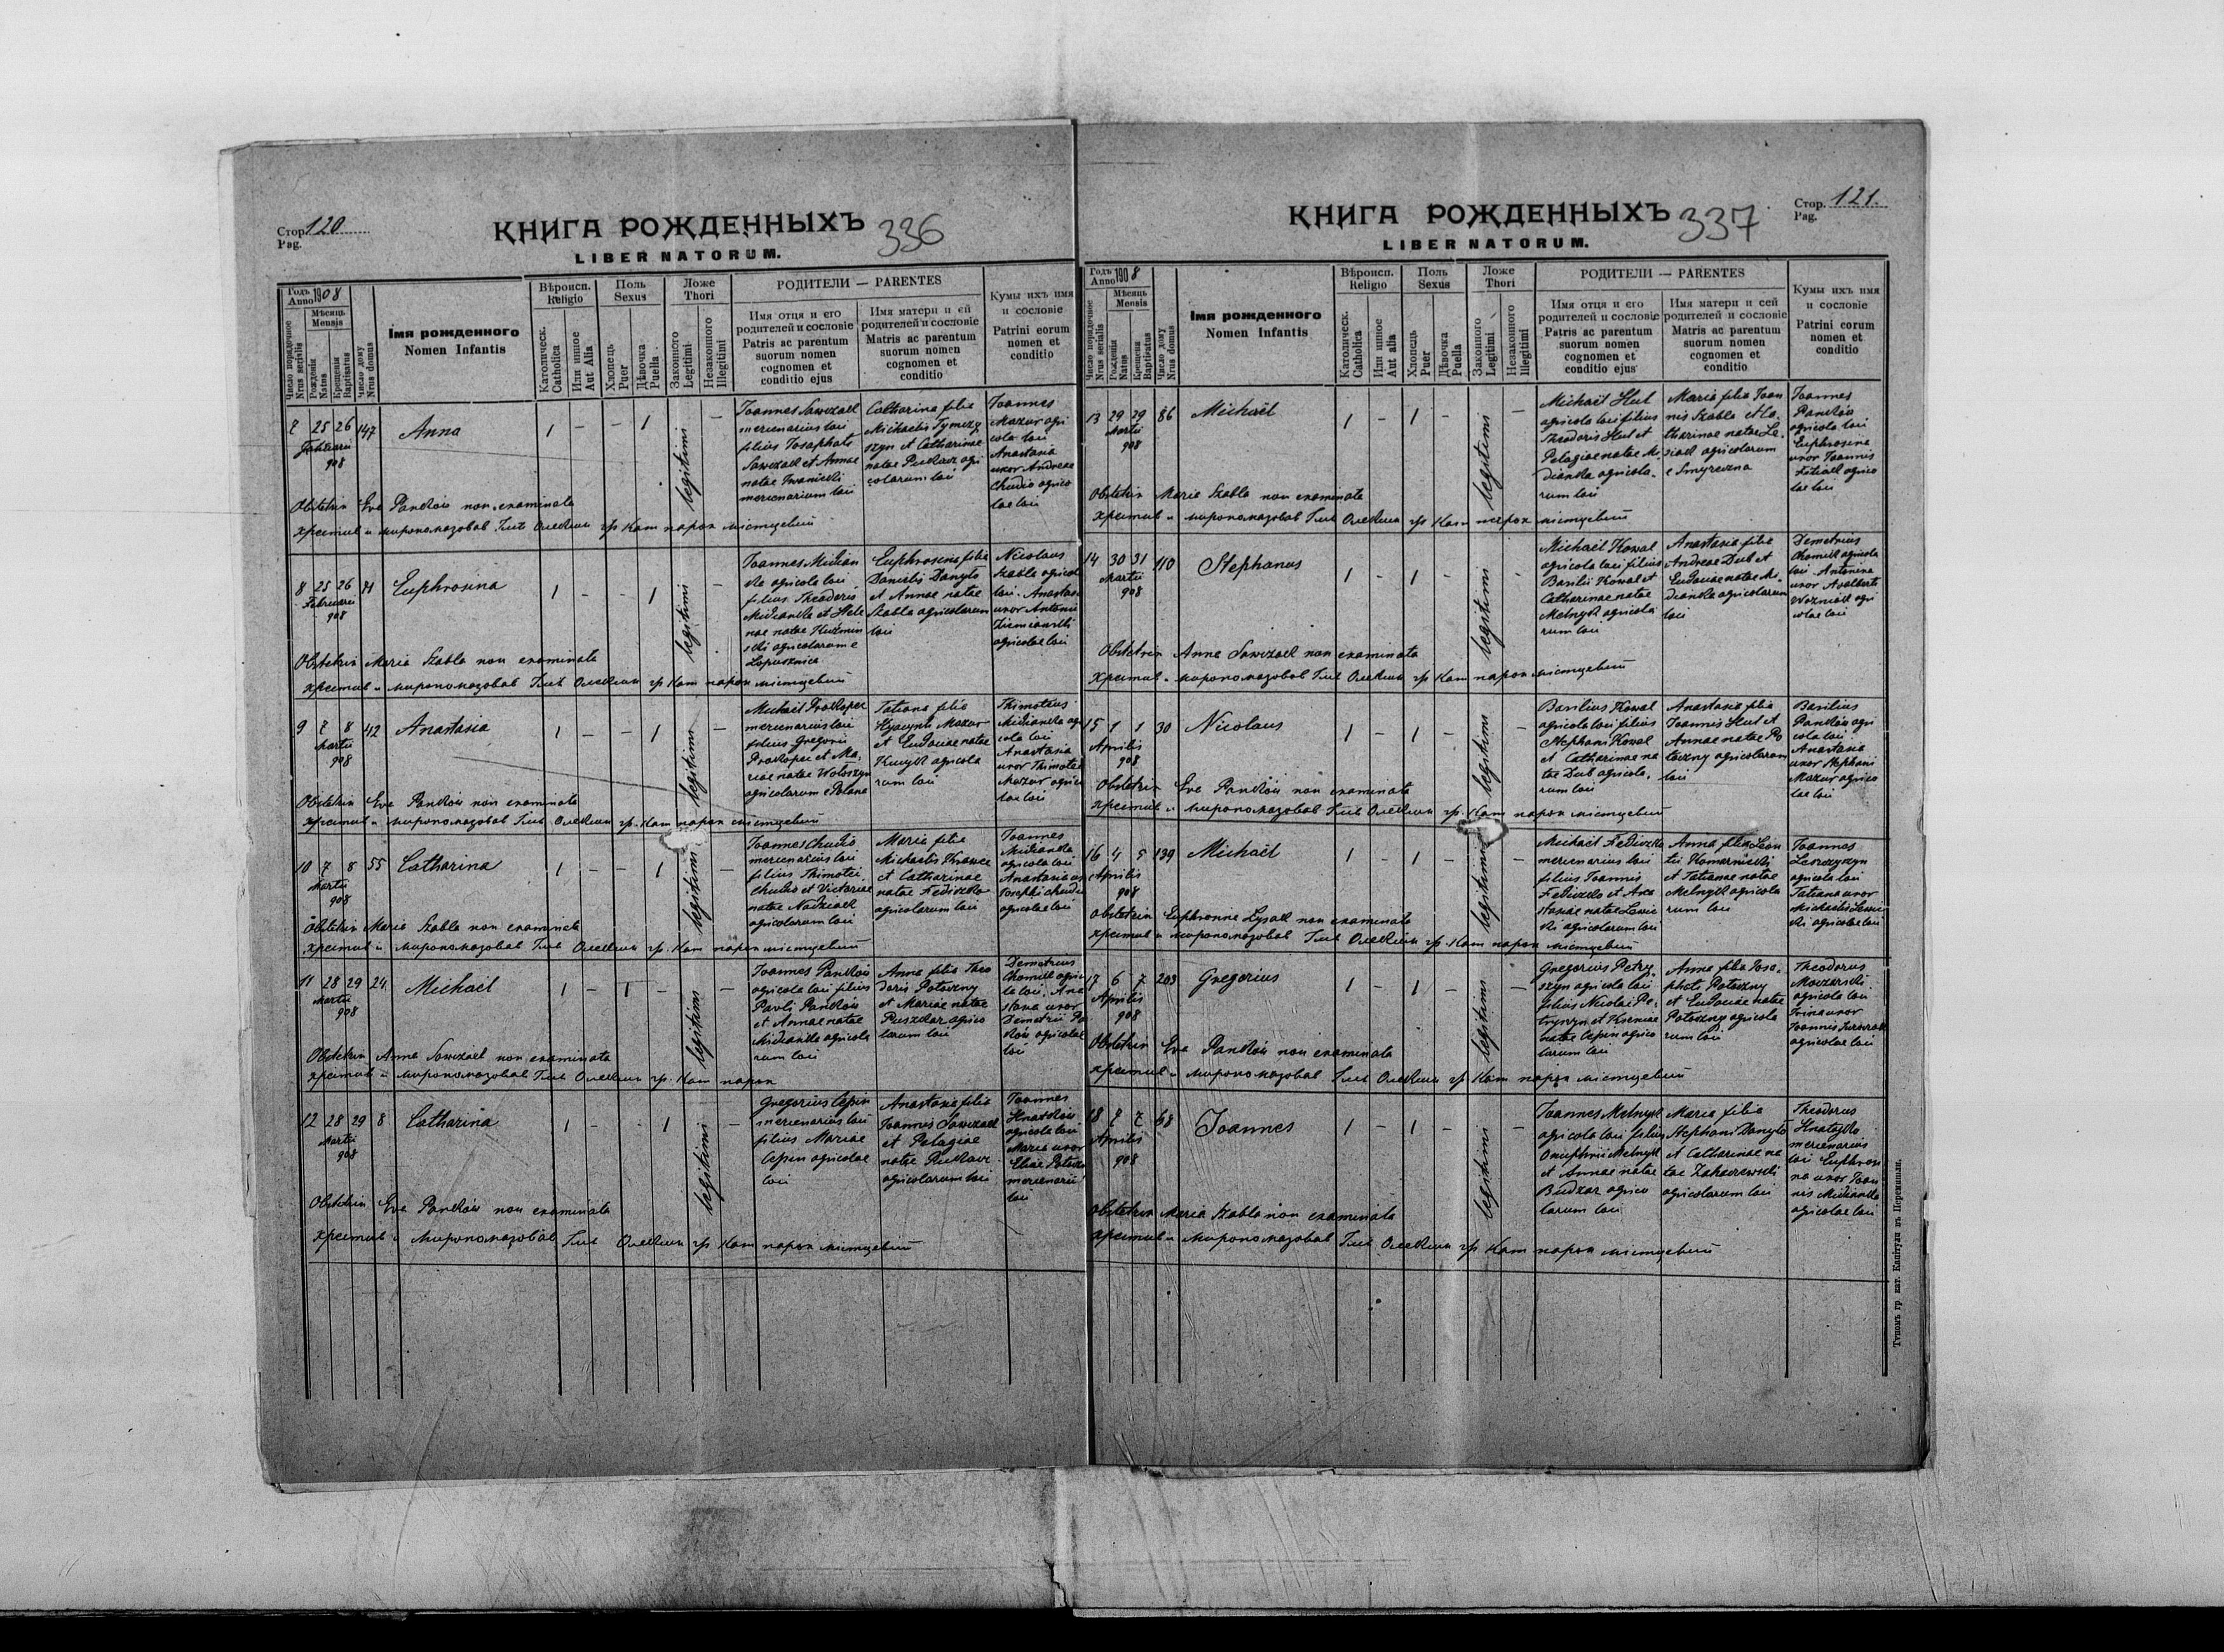 Стор. 120
Pag.
КНИГА РОЖДЕННЫХЪ 336
LIBER NATORUM.
Годъ 1908
Anno
Мѣсяць
Mensis
Число порядочное
Nrus serialis
Рожденія
Natus
Крещенія
Baptisatus
Число дому
Nrus domus
Імя рожденного
Nomen Infantis
Вѣроисп.
Religio
Католическ.
Catholica
Или инное
Aut Alia
Поль
Sexus
Хлопець
Puer
Дѣвочка
Puella
Ложе
Thori
Законного
Legitimi
Незаконного
Illegitimi
РОДИТЕЛИ — PARENTES
Имя отця и его
родителей и сословіе
Patris ac parentum
suorum nomen
cognomen et
conditio ejus
Имя матери и ей
родителей и сословіе
Matris ac parentum
suorum nomen
cognomen et
conditio
Кумы ихъ имя
и сословіе
Patrini eorum
nomen et
conditio
7 25 26 147 Anna 1 – – 1 legitimi –
Februarii
908
Joannes Sawczak
mercenarius loci
filius Josaphate
Sawczak et Annae
natae Iwanicki
mercenarium loci
Catharina filia
Michaelis Tymczy
szyn et Catharinae
natae agri
colarum loci
Joannes
Mazur agri
cola loci
Anastasia
uxor Andreae
Chudio agrico
lae loci
Obstetrix Eva Pankow non examinata
хрестив и миропомазовав Глѣб Олекшин гр кат парох містцевий
8 25 26 71 Euphrosina 1 – – 1 legitimi –
Februarii
908
Joannes Midian
ka agricola loci
filius Theodoris
Midianka et Hele
nae natae Kuźmin
ski agricolarum e
Łopusznica
Euphrosina filia
Danielis Danyło
et Annae natae
Szabla agricolarum
loci
Nicolaus
Szabla agricola
loci. Anastasia
uxor Antonii
agricolae loci
Obstetrix Maria Szabla non examinata
хрестив и миропомазовав Глѣб Олекшин гр кат парох містцевий
9 7 8 42 Anastasia 1 – – 1 legitimi –
Martii
908
Michael Prokopec
mercenarius loci
filius Gregorii
Prokopec et Ma-
riae natae Wołoszyn
agricolarum e Polana
Tatiana filia
Hyacynti Mazur
et Eudociae natae
Kmyk agricola
rum loci
Thimoteus
Midianka agri
cola loci
Anastasia
uxor Thimotei
Mazur agrico
lae loci
Obstetrix Eva Pankow non examinata
хрестив и миропомазовав Глѣб Олекшин гр. кат парох містцевий
10 7 8 55 Catharina 1 – – 1 legitimi –
Martii
908
Joannes Chudio
mercenarius loci
filius Thimotei
Chudio et Victoriae
natae Nadziak
agricolarum loci
Maria filia
Michaelis Krawec
et Catharinae
natae Fediczko
agricolarum loci
Joannes
Midianka
agricola loci
Anastasia ux
Josephi Chudio
agricolae loci
Obstetrix Maria Szabla non examinata
хрестив и миропомазовав Глѣб Олекшин гр. кат парох містцевий
11 28 29 24. Michael 1 – 1 – legitimi –
Martii
908
Joannes Pankow
agricola loci filius
Pavli Pankow
et Annae natae
Midianka agricola
rum loci
Anna filia Theo
doris Potoczny
et Mariae natae
Puszkar agrico
larum loci
Demetrius
Chomik agri
cola loci. Ana
stasia uxor
Demetrii Pa
kow agricolae
loci
Obstetrix Anna Sawczak non examinata
хрестив и миропомазовав Глѣб Олекшин гр. кат парох
12 28 29 8 Catharina 1 – – 1 legitimi –
Martii
908
Gregorius Cepin
mercenarius loci
filius Mariae
Cepin agricolae
loci
Anastasia filia
Joannis Sawczak
et Pelagiae
natae
agricolarum loci
Joannes
agricola loci
Maria uxor
Eliae Potoczn
mercenarii
loci
Obstetrix Eva Pankow non examinata
хрестив и миропомазовав Глѣб Олекшин гр кат парох містцевий
Стор. 121.
Pag.
КНИГА РОЖДЕННЫХЪ 337
LIBER NATORUM.
Годъ 1908
Anno
Мѣсяць
Mensis
Число порядочное
Nrus serialis
Рожденія
Natus
Крещенія
Baptisatus
Число дому
Nrus domus
Імя рожденного
Nomen Infantis
Вѣроисп.
Religio
Католическ.
Catholica
Или инное
Aut alia
Поль
Sexus
Хлопець
Puer
Дѣвочка
Puella
Ложе
Thori
Законного
Legitimi
Незаконного
Illegitimi
РОДИТЕЛИ — PARENTES
Имя отця и его
родителей и сословіе
Patris ac parentum
suorum nomen
cognomen et
conditio ejus
Имя матери и сей
родителей и сословіе
Matris ac parentum
suorum nomen
cognomen et
conditio
Кумы ихъ имя
и сословіе
Patrini eorum
nomen et
conditio
13 29 29 86 Michael 1 – 1 – legitimi –
Martii
908
Michael Hut
agricola loci filius
Theodoris Hut et
Pelagiae natae Mi-
dianka agricola-
rum loci
Maria filia Joan
nis Szabla et Ca-
tharinae natae Le-
siak agricolarum
e Smereczna
Joannes
Pankow
agricola loci
Euphrosina
uxor Joannis
agrico
lae loci
Obstetrix Maria Szabla non examinata
хрестив и миропомазовав Глѣб Олекшин гр кат парох містцевий
14 30 31 110 Stephanus 1 – 1 – legitimi –
Martii
908
Michael Kowal
agricola loci filius
Basilii Kowal et
Catharinae natae
Melnyk agricola
rum loci
Anastasia filia
Andreae Dub et
Eudociae natae Mi-
dianka agricolarum
loci
Demetrius
Chomik agricola
loci. Antonina
uxor Adalberti
Wozniak agri
colae loci
Obstetrix Anna Sawczak non examinata
хрестив и миропомазовав Глѣб Олекшин гр кат парох містцевий
15 1 1 30 Nicolaus 1 – 1 – legitimi –
Aprilis
908
Basilius Kowal
agricola loci filius
Stephani Kowal
et Catharinae na
tae Dub agricola-
rum loci
Anastasia filia
Joannis Hut et
Annae natae Po
toczny agricolarum
loci
Basilius
Pankow agri
cola loci
Anastasia
uxor Stephani
Mazur agrico
lae loci
Obstetrix Eva Pankow non examinata
хрестив и миропомазовав Глѣб Олекшин гр. кат парох містцевий
16 4 5 139 Michael 1 – 1 – legitimi –
Aprilis
908
Michael Fediczko
mercenarius loci
filius Joannis
Fediczko et Ana
stasiae natae Lesic
ki agricolarum loci
Anna filia Leon
tii Komarnicki
et Tatianae natae
Melnyk agricola
rum loci
Joannes
agricola loci
Tatiana uxor
Michaelis Lesic
ki agricolae loci
Obstetrix Euphronne Łysak non examinata
хрестив и миропомазовав Глѣб Олекшин гр. кат парох містцевий
17 6 7 203 Gregorius 1 – 1 – legitimi –
Aprilis
908
Gregorius Petry-
szyn agricola loci
filius Nicolai Pe-
tryszyn et Kseniae
natae Cepin agrico
larum loci
Anna filia Josa-
phati Potoczny
et Eudociae natae
Potoczny agricola
rum loci
Theodorus
Mazurski
agricola loci
Irina uxor
Joannis
agricolae loci
Obstetrix Eva Pankow non examinata
хрестив и миропомазовав Глѣб Олекшин гр кат парох містцевий
18 7 7 68 Joannes 1 – 1 – legitimi –
Aprilis
908
Joannes Melnyk
agricola loci filius
Onuphrii Melnyk
et Annae natae
Budzar agrico
larum loci
Maria filia
Stephani Danyło
et Catharinae na
tae Zaharewski
agricolarum loci
Theodorus
mercenarius
loci Euphrosi
na uxor Joan
nis Midianka
agricolae loci
Obstetrix Maria Szabla non examinata
хрестив и миропомазовав Глѣб Олекшин гр кат парох містцевий
Типомъ гр. кат. Капітули въ Перемышли.